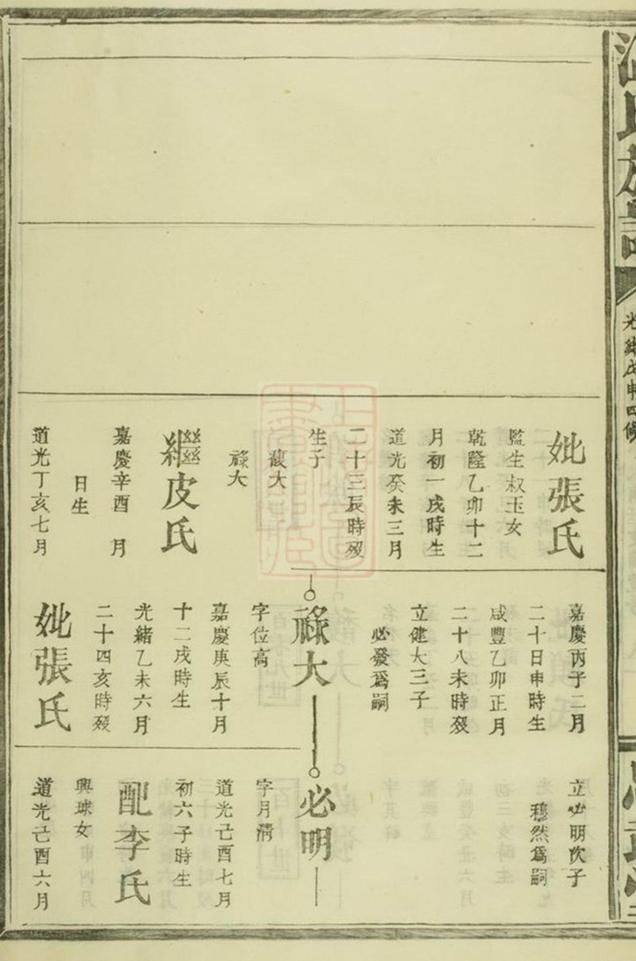 光緒戊申四修
妣張氏
監生叔玉女
乾隆乙卯十二
月初一戌時生
道光癸未三月
二十三辰時歿
生子
馥大
祿大
繼皮氏
嘉慶辛酉 月
日生
道光丁亥七月
嘉慶丙子二月
二十日申時生
咸豐乙卯正月
二十八未時歿
立健大三子
必發爲嗣
祿大
字位高
嘉慶庚辰十月
十二戌時生
光緒乙未六月
二十四亥時歿
妣張氏
立必明次子
穆然爲嗣
必明
字月清
道光己酉七月
初六子時生
配李氏
興球女
道光己酉六月